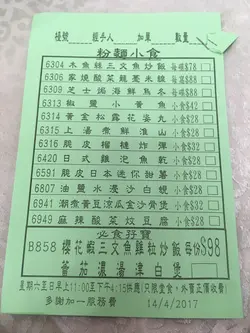 檯號 經手人 加單 數量
粉麵小食
6304 木魚雞三文魚炒飯 每碟$78
6306 家燒酸菜龍躉米線 每窩$88
6309 芝士焗海鮮烏冬 每份$88
6313 椒鹽小黃魚 小食$42
6314 黃金松露花姿丸 小食$28
6315 上湯煮鮮淮山 小食$28
6316 脆皮榴槤炸 小食$32
6420 日式雞泡魚乾 小食$28
6591 脆皮糯米 小食$28
6807 油鹽水浸沙白蜆 小食$28
6941 潮煮黃豆涼瓜金沙骨煲 小食$28
6949 麻辣酸菜炆豆腐 小食$28
必食孖寶
B858 櫻花蝦三文魚雞粒炒飯 每份$98
蕃茄濃湯津白煲
星期六至日早上11:00至下午4:15供應(只限堂食，外賣正價收費)
多謝加一服務費 14/4/2017